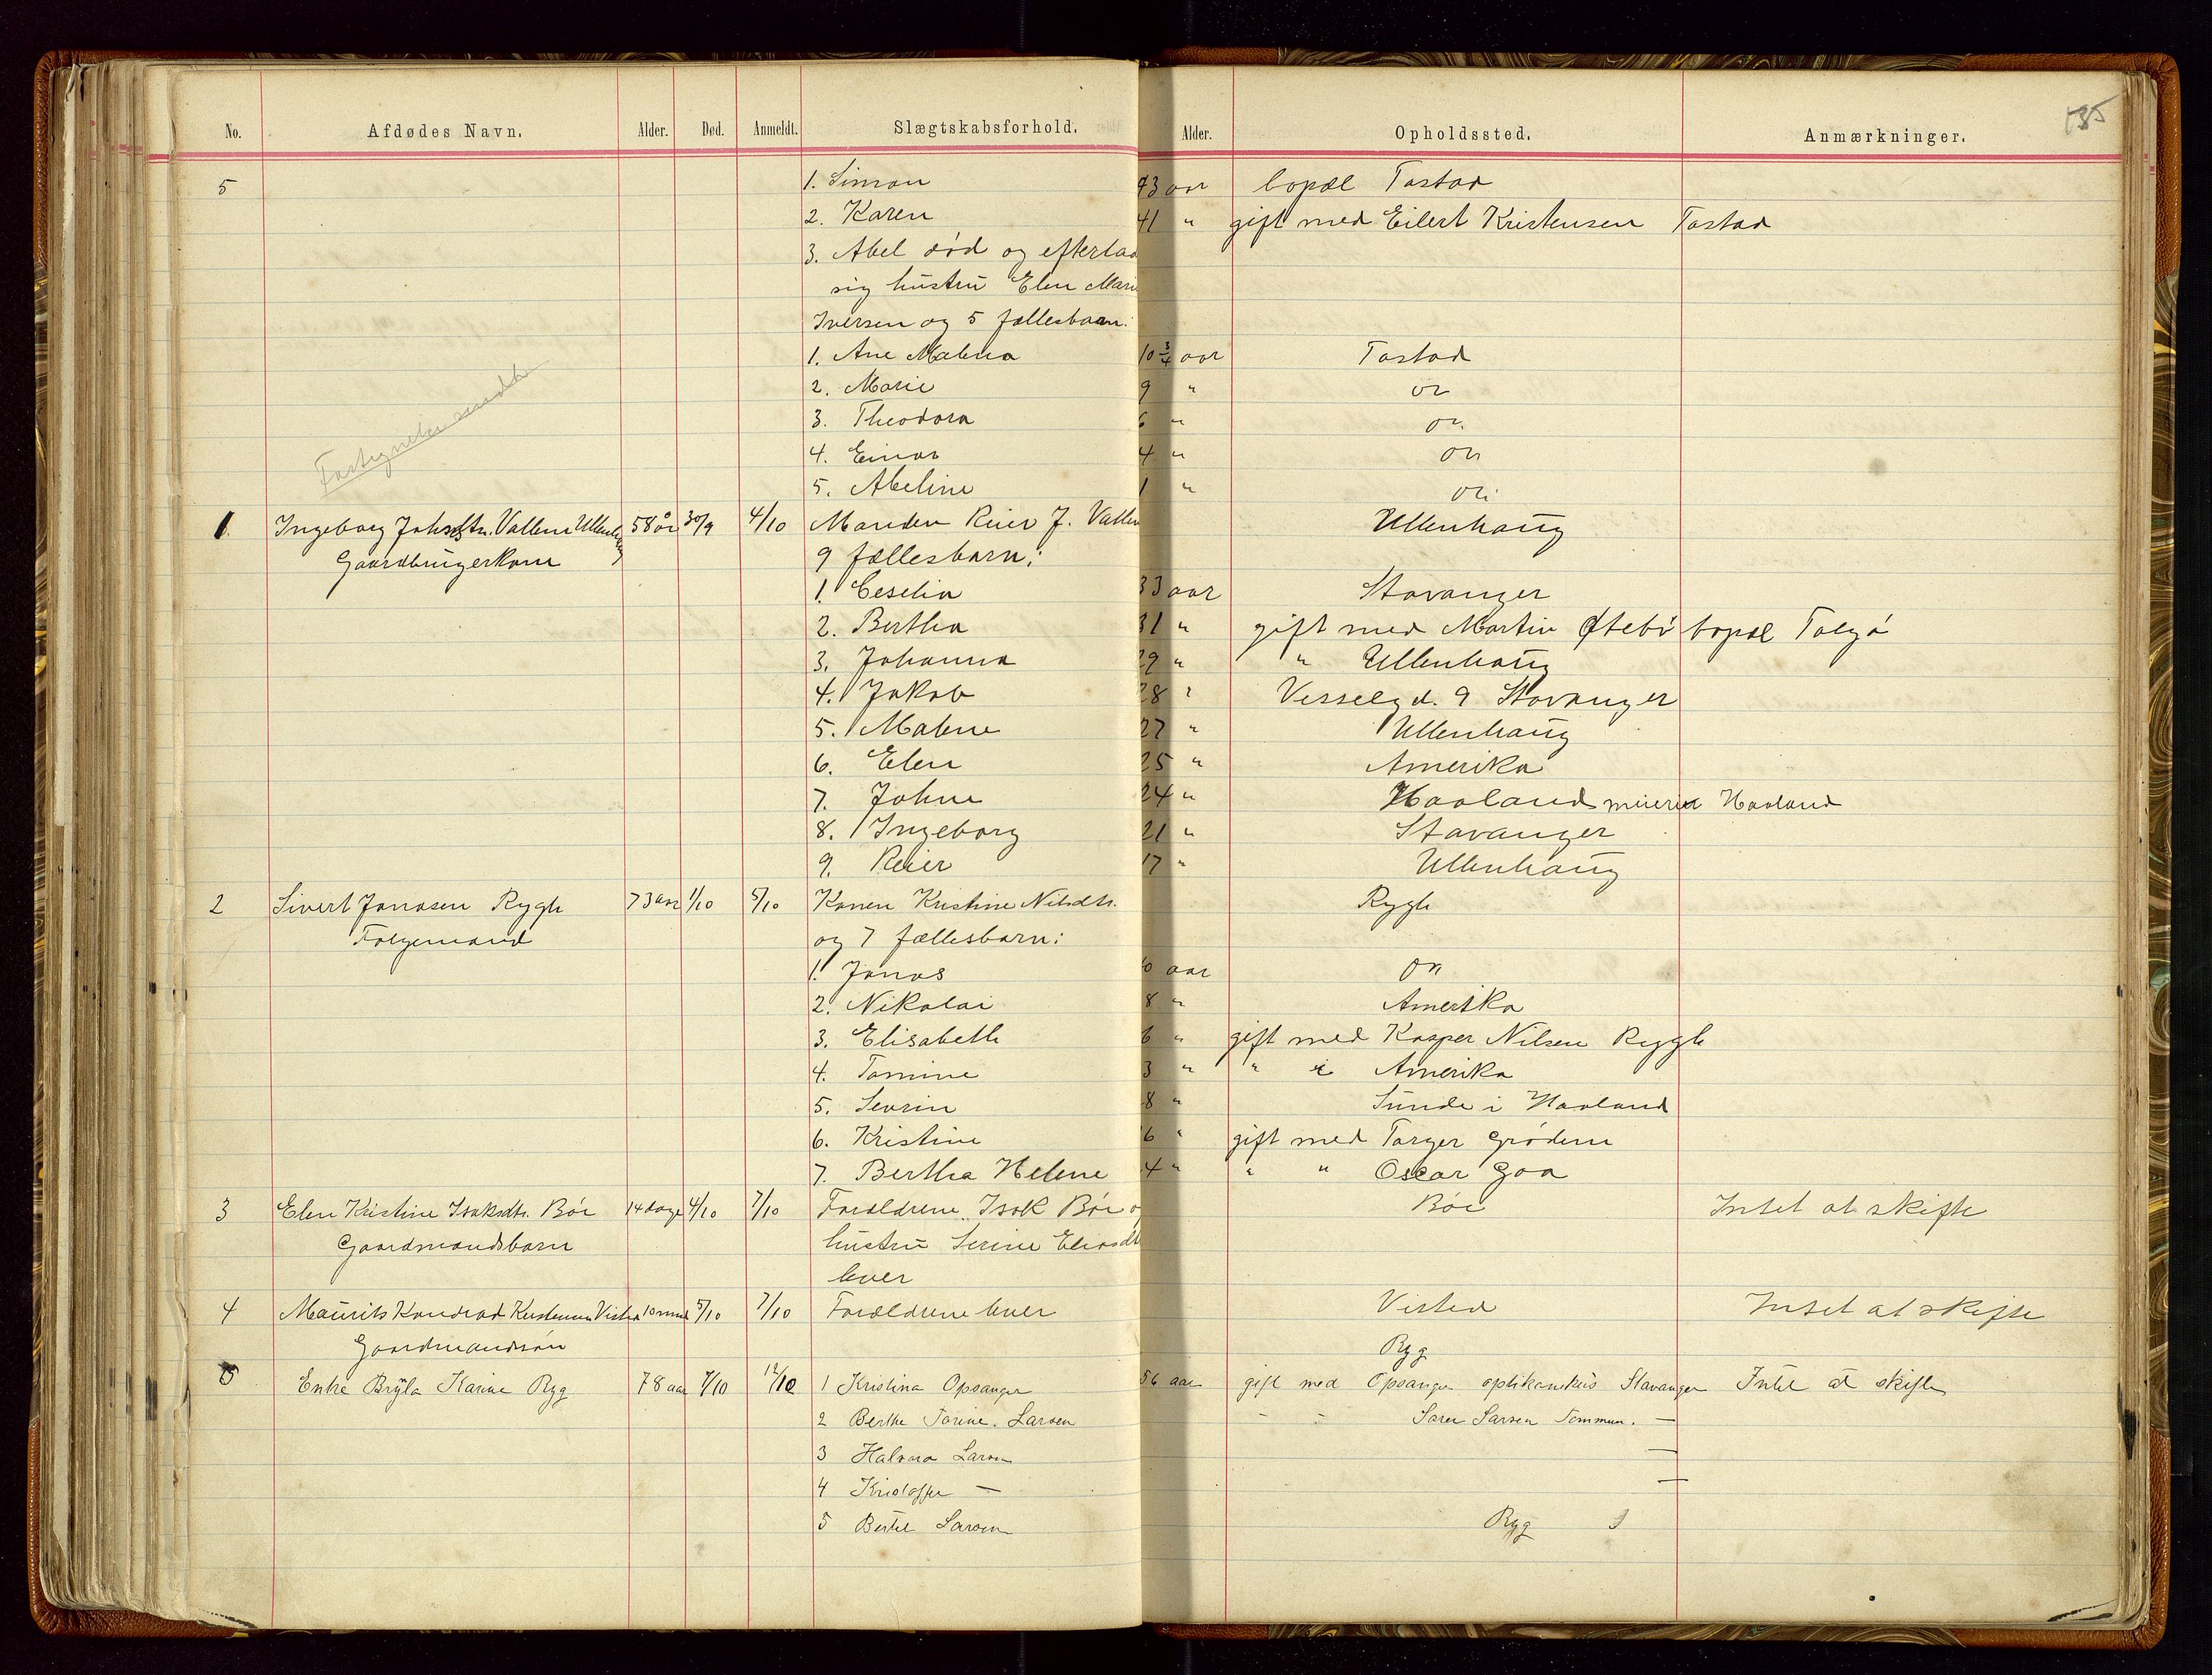 135
No. Afdødes Navn. Alder. Død. Anmeldt. Slægtskabsforhold. Alder. Opholdssted. Anmærkninger.
5 1. Simon 43 aar bopæl Tastad
2. Karen 41 " gift med Eilert Kristensen Tastad
3. Abel død og efterlad
sig hustru Elen Mari
Iversen og 5 fællesbarn:
1. Ane Malena 10 3/4 aar Tastad
2. Marie 9 " do
3. Theodora 6 " do
4. Einar 4 " do
5. Abeline 1 " do
1. Ingeborg Johsdtr. Vallene Ullenhaug 58 år 30/9 4/10 Manden Reier J. Vallen Ullenhaug
Gaardbrugerkone 9 fællesbarn:
1. Ceselia 33 aar Stavanger
2. Bertha 31 " gift med Martin Østebö bopæl Talgö
3. Johanna 29 " " Ullenhaug
4. Jakob 28 " Verselgd. 9 Stavanger
5. Malene 27 " Ullenhaug
6. Elen 25 " Amerika
7. Johne 24 " Haaland meieri Haaland
8. Ingeborg 21 " Stavanger
9. Reier 17 " Ullenhaug
2 Sivert Jonasen Rygh 73 aar 1/10 5/10 Konen Kristine Nilsdtr. Rygh
Folgemand og 7 fællesbarn:
1. Jonas 0 aar do
2. Nikolai 8 " Amerika
3. Elisabeth 6 " gift med Kasper Nilsen Rygh
4. Tomine 3 " " i Amerika
5. Sevrin 8 " Sunde i Haaland
6. Kristine 6 " gift med Torger Grödem
7. Bertha Helene 4 " " " Oscar Goa
3 Elen Kristine Isaksdtr. Böe 14 dage 4/10 7/10 Forældrene Isak Böe o Böe Intet at skifte
Gaardmandsbarn hustru Serine Eliasdt
lever
4 Maurits Kondrad Kristensen Visted 10 mnd 5/10 7/10 Forældrene lever Visted Intet at skifte
Gaardmandssön
Ryg
5 Enke Karine Ryg 78 aar 7/10 12/10 1 Kristina Opsanger 56 aar gift med Opsanger Stavanger Intet at skifte
2 Berthe Torine. Larsen - - Søren Larsen Tommem. —
3 Halvara Larsen —
4 Kristoffer — —
5 Bertel Larsen Ryg